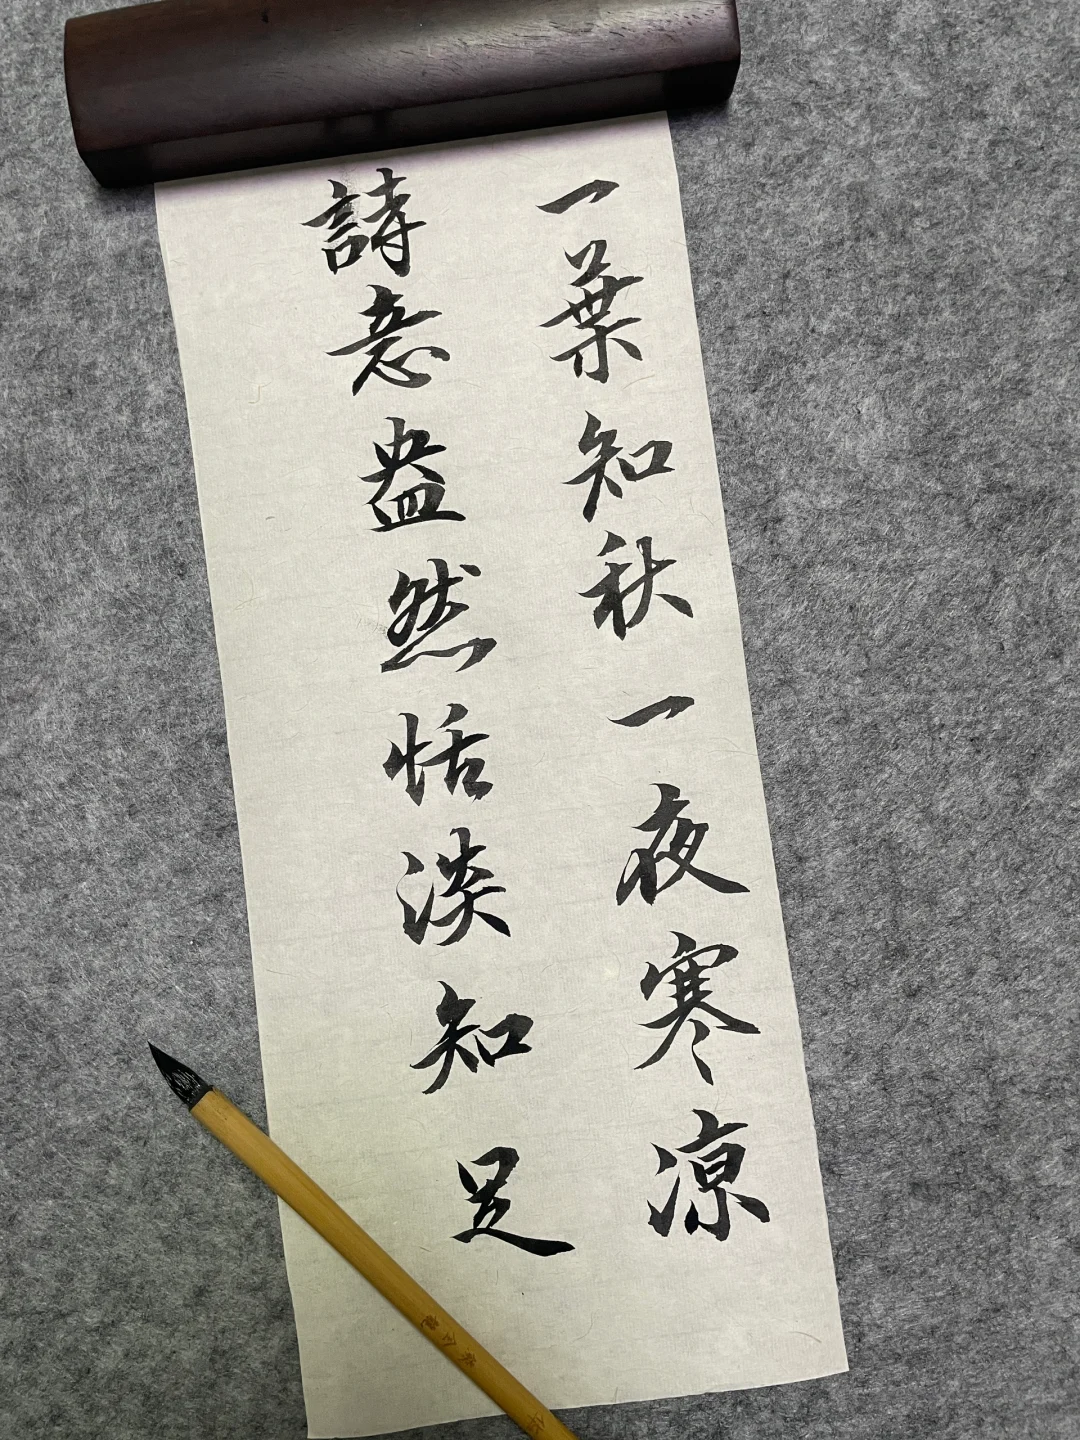 一葉知秋一夜寒涼
詩意盎然恬淡知足